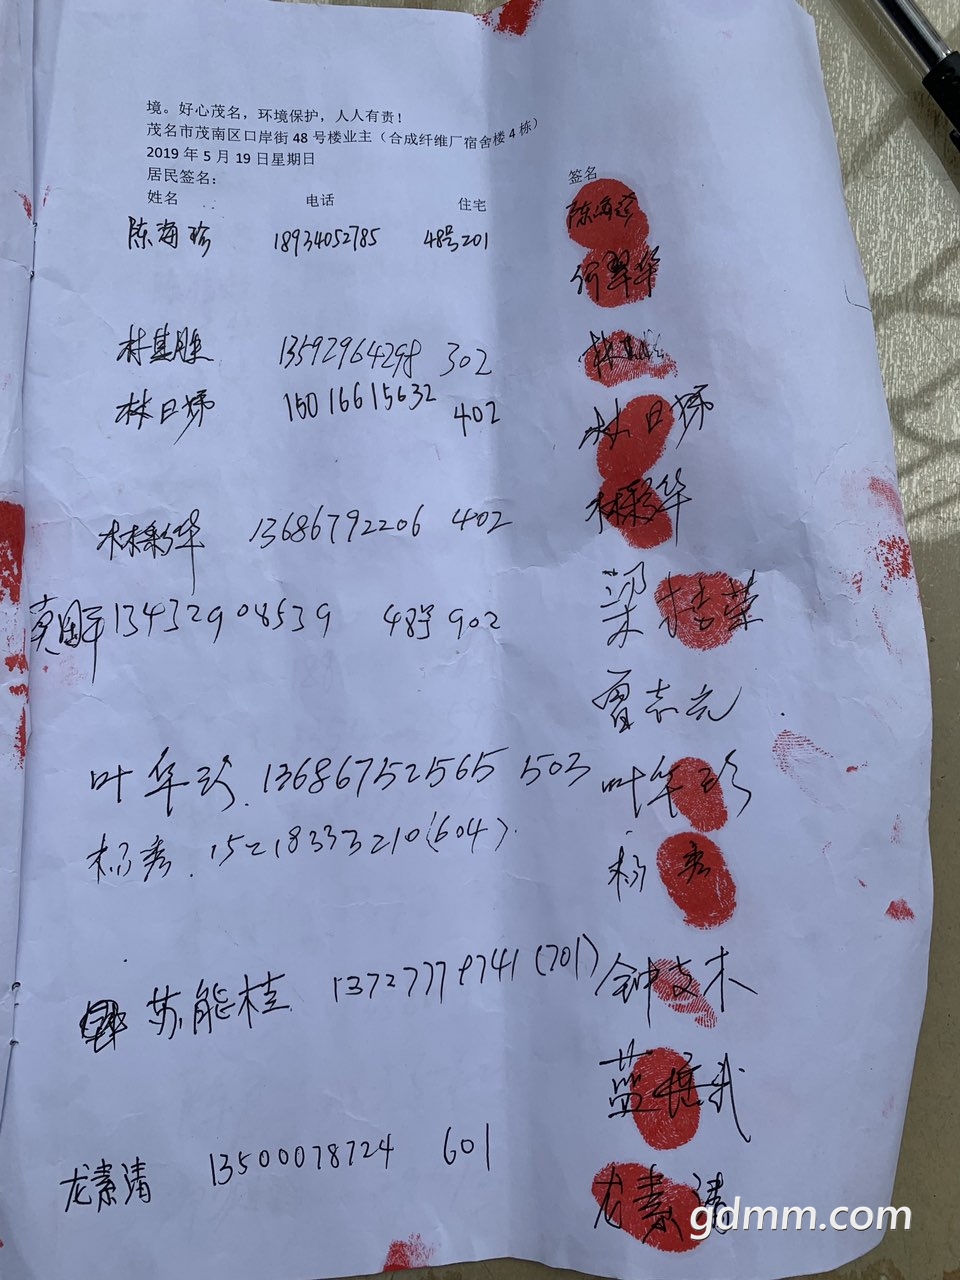 境。好心茂名，环境保护，人人有责！
茂名市茂南区口岸街 48 号楼业主（合成纤维厂宿舍楼 4 栋）
2019 年 5 月 19 日星期日
居民签名：
签名
姓名 电话 住宅
陈海珍 18934052785 48号201 陈海珍
何翠华
林基胜 13592964298 302
林日娣 15016615632 402 林日娣
林彩华 13686792206 402 林彩华
13432908539 48号902 梁 荣
曾志元
叶华珍 13686752565 503 叶华珍
杨秀 15218333210(604) 杨秀
苏能桂 13727779741(701) 钟 木
蓝 武
龙素清 13500078724 601 龙素清
gdmm.com